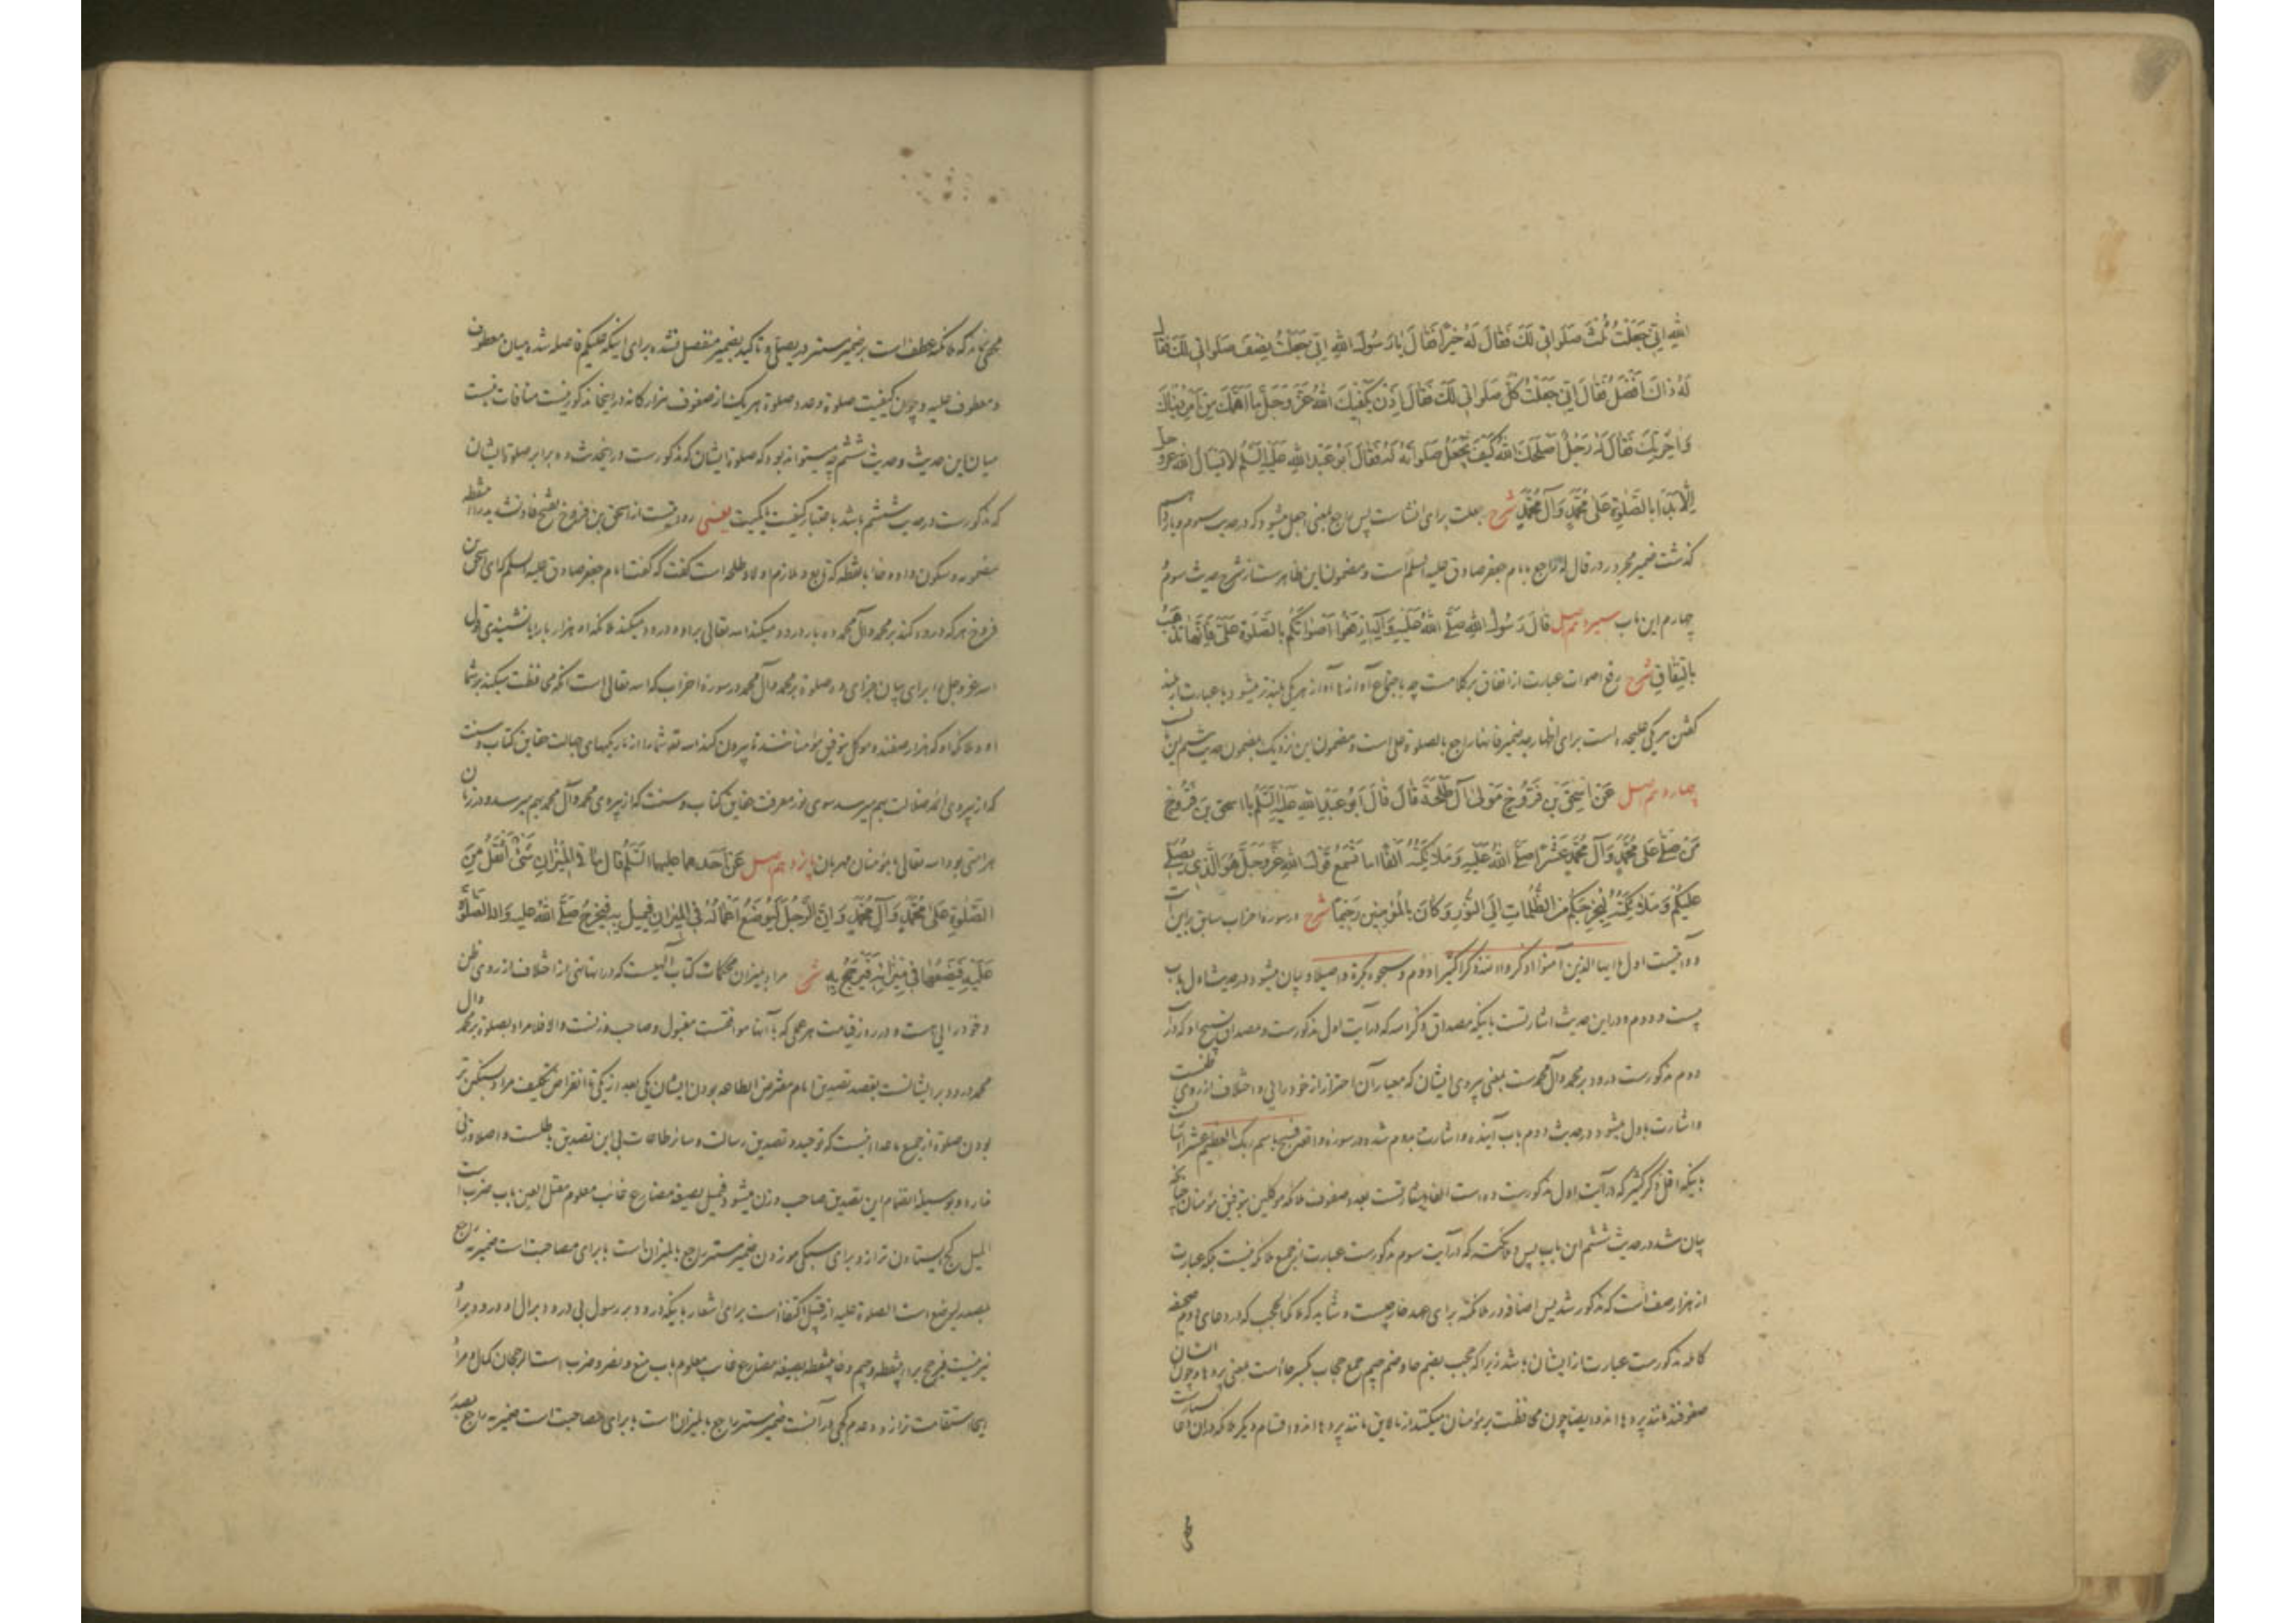 الله اني جعلت ثلث صلواتي لك فقال له خيرا فقال يا رسول الله اني جعلت نصف صلواتي لك فقال
له ذاك افضل فقال اني جعلت كل صلواتي لك فقال اذن يكفيك الله عز وجل ما اهمك من امر دنياك
و آخرتك فقال له رجل اصلحك الله كيف يجعل صلواته له فقال ابو عبد الله عليه السلم لا يسال الله عز وجل
الا بدا بالصلوة على محمد وآل محمد شرح جعلت برای انشاست پس راجع بمعنی اجعل میشود که در حدیث سوم
گذشت ضمیر مجرور در قال له راجع بامام جعفر صادق علیه السلم است و مضمون این ظاهرست از شرح حدیث سوم
چهارم این باب سیزدهم اصل قال رسول الله صلى الله عليه وآله ارفعوا اصواتكم بالصلوة علي فانها تذهب
بالنفاق شرح رفع اصوات عبارت از اتفاق بر کلامست چه باجتماع آوازها آواز هر یکی بلندتر میشود یا عبارت از بلند
گفتن هر یکی علیحده است برای اظهار ضمیر فانها راجع بالصلوة علی است و مضمون این نزدیک بمضمون حدیث هشتم این باب
چهاردهم اصل عن اسحق بن فروخ مولى آل طلحة قال قال ابو عبد الله عليه السلم يا اسحق بن فروخ
من صلى على محمد وآل محمد عشرا صلى الله عليه وملائكته الفا اما تسمع قول الله عز وجل هو الذي يصلي
عليكم وملائكته ليخرجكم من الظلمات الى النور وكان بالمؤمنين رحيما شرح در سوره احزاب سابق برین آیت
دو آیتست اول یا ایها الذین آمنوا اذکروا الله ذکرا کثیرا دوم و سبحوه بکرة و اصیلا و بیان میشود در حدیث اول باب
بیست و دوم و در این حدیث اشارتست باینکه مصداق ذکر الله که در آیت اول مذکورست و مصداق تسبیح او که در آیت
دوم مذکورست درود بر محمد و آل محمدست بمعنی پیروی ایشان که معیار آن احتراز از خودرایی و اختلاف از روی ظنست
و اشارت باول میشود در حدیث دوم باب آینده و اشارت بدوم شده در سوره واقعه فسبح باسم ربک العظیم عشرا
باینکه اقل ذکر کثیر که در آیت اول مذکورست ده است الفا اشارتست بعدد صفوف ملائکه موکلین بتوفیق مؤمنان چنانچه
بیان شد در حدیث ششم این باب پس ملائکته که در آیت سوم مذکورست عبارت از جمیع ملائکه نیست بلکه عبارت
از هزار صف است که مذکور شد پس اضافه در ملائکته برای عهد خارجیست و شاید که ملائکة الحجب که در دعای دوم صحیفه
کامله مذکورست عبارت از ایشان باشد زیرا که حجب بضم حا و ضم جیم جمع حجاب بکسر حا است بمعنی پرده‌ها و چون ایشان
صفوفند مانند پرده‌ها اند و ایضا چون محافظت بر مؤمنان میکنند از نالایق مانند پرده‌ها اند و اقسام دیگر ملائکه در آن دعا
مخفی نماند که ملائکته عطف است بر ضمیر مستتر در یصلی و تاکید بضمیر منفصل نشده برای اینکه علیکم فاصله شده میان معطوف
و معطوف علیه و چون کیفیت صلوة و عدد صلوة هر یک از صفوف هزارگانه در اینجا مذکور نیست منافات نیست
میان این حدیث و حدیث ششم چه میتواند بود که صلوة ایشان که مذکورست در اینحدیث ده برابر صلوة ایشان
که مذکورست در حدیث ششم باشد باعتبار کیفیت یا کمیت یعنی روایتست از اسحق بن فروخ بفتح فا و تشدید را بی نقطه
مضمومه و سکون واو و خا با نقطه که تابع و ملازم اولاد طلحه است گفت که گفت امام جعفر صادق علیه السلم که ای اسحق بن
فروخ هر که درود کند بر محمد و آل محمد ده بار درود میکند الله تعالی بر او و درود میکند ملائکه او هزار بار آیا نشنیدی قول
الله عز و جل را برای بیان جزای ده صلوة بر محمد و آل محمد در سورة احزاب که الله تعالی است آنکه محافظت میکند بر شما
او و ملائکه او که هزار صفند و موکل بتوفیق مؤمنانند تا بیرون کند الله تعالی شما را از تاریکیهای جهالت حقایق کتاب و سنت
که از پیروی ائمه ضلالت بهم میرسد سوی نور معرفت حقایق کتاب و سنت که از پیروی محمد و آل محمد بهم میرسد و در زمان
هر امتی بود الله تعالی بمؤمنان مهربان پانزدهم اصل عن احدهما عليهما السلم قال ما في الميزان شئ اثقل من
الصلوة على محمد وآل محمد وان الرجل ليوضع اعماله في الميزان فيميل به فيخرج صلى الله عليه واله الصلوة
عليه فيضعها في ميزانه فيرجح به شرح مراد بمیزان محکمات کتاب الهیست که در آنها نهی از اختلاف از روی ظن
و خودرایی است و در روز قیامت هر عملی که با آنها موافقست مقبول و صاحب وزنست والا فلا مراد بصلوة بر محمد و آل
محمد درود بر ایشانست بقصد تصدیق امام مفترض الطاعه بودن ایشان یکی بعد از یکی تا انقراض تکلیف مراد بسنگین تر
بودن صلوة از جمیع ماعدا اینست که توحید و تصدیق رسالت و سایر طاعات بی این تصدیق باطلست و اصلا وزنی
ندارد و بوسیلهٔ انضمام این تصدیق صاحب وزن میشود فیمیل بصیغه مضارع غایب معلوم معتل العین باب ضرب است
المیل کج ایستادن ترازو برای سبکی موزون ضمیر مستتر راجع بالمیزان است با برای مصاحبت است ضمیر به راجع
بمصدر لیوضع است الصلوة علیه از قبیل اکتفا است برای اشعار باینکه درود بر رسول بی درود بر آل او درود بر او
نیز نیست فیرجح برا بی نقطه و جیم و حا بی نقطه بصیغه مضارع غایب معلوم باب منع و نصر و ضرب است الرجحان کمال و مراد
اینجا استقامت ترازو و عدم کجی در آنست ضمیر مستتر راجع بالمیزان است با برای مصاحبت است ضمیر به راجع بمصدر